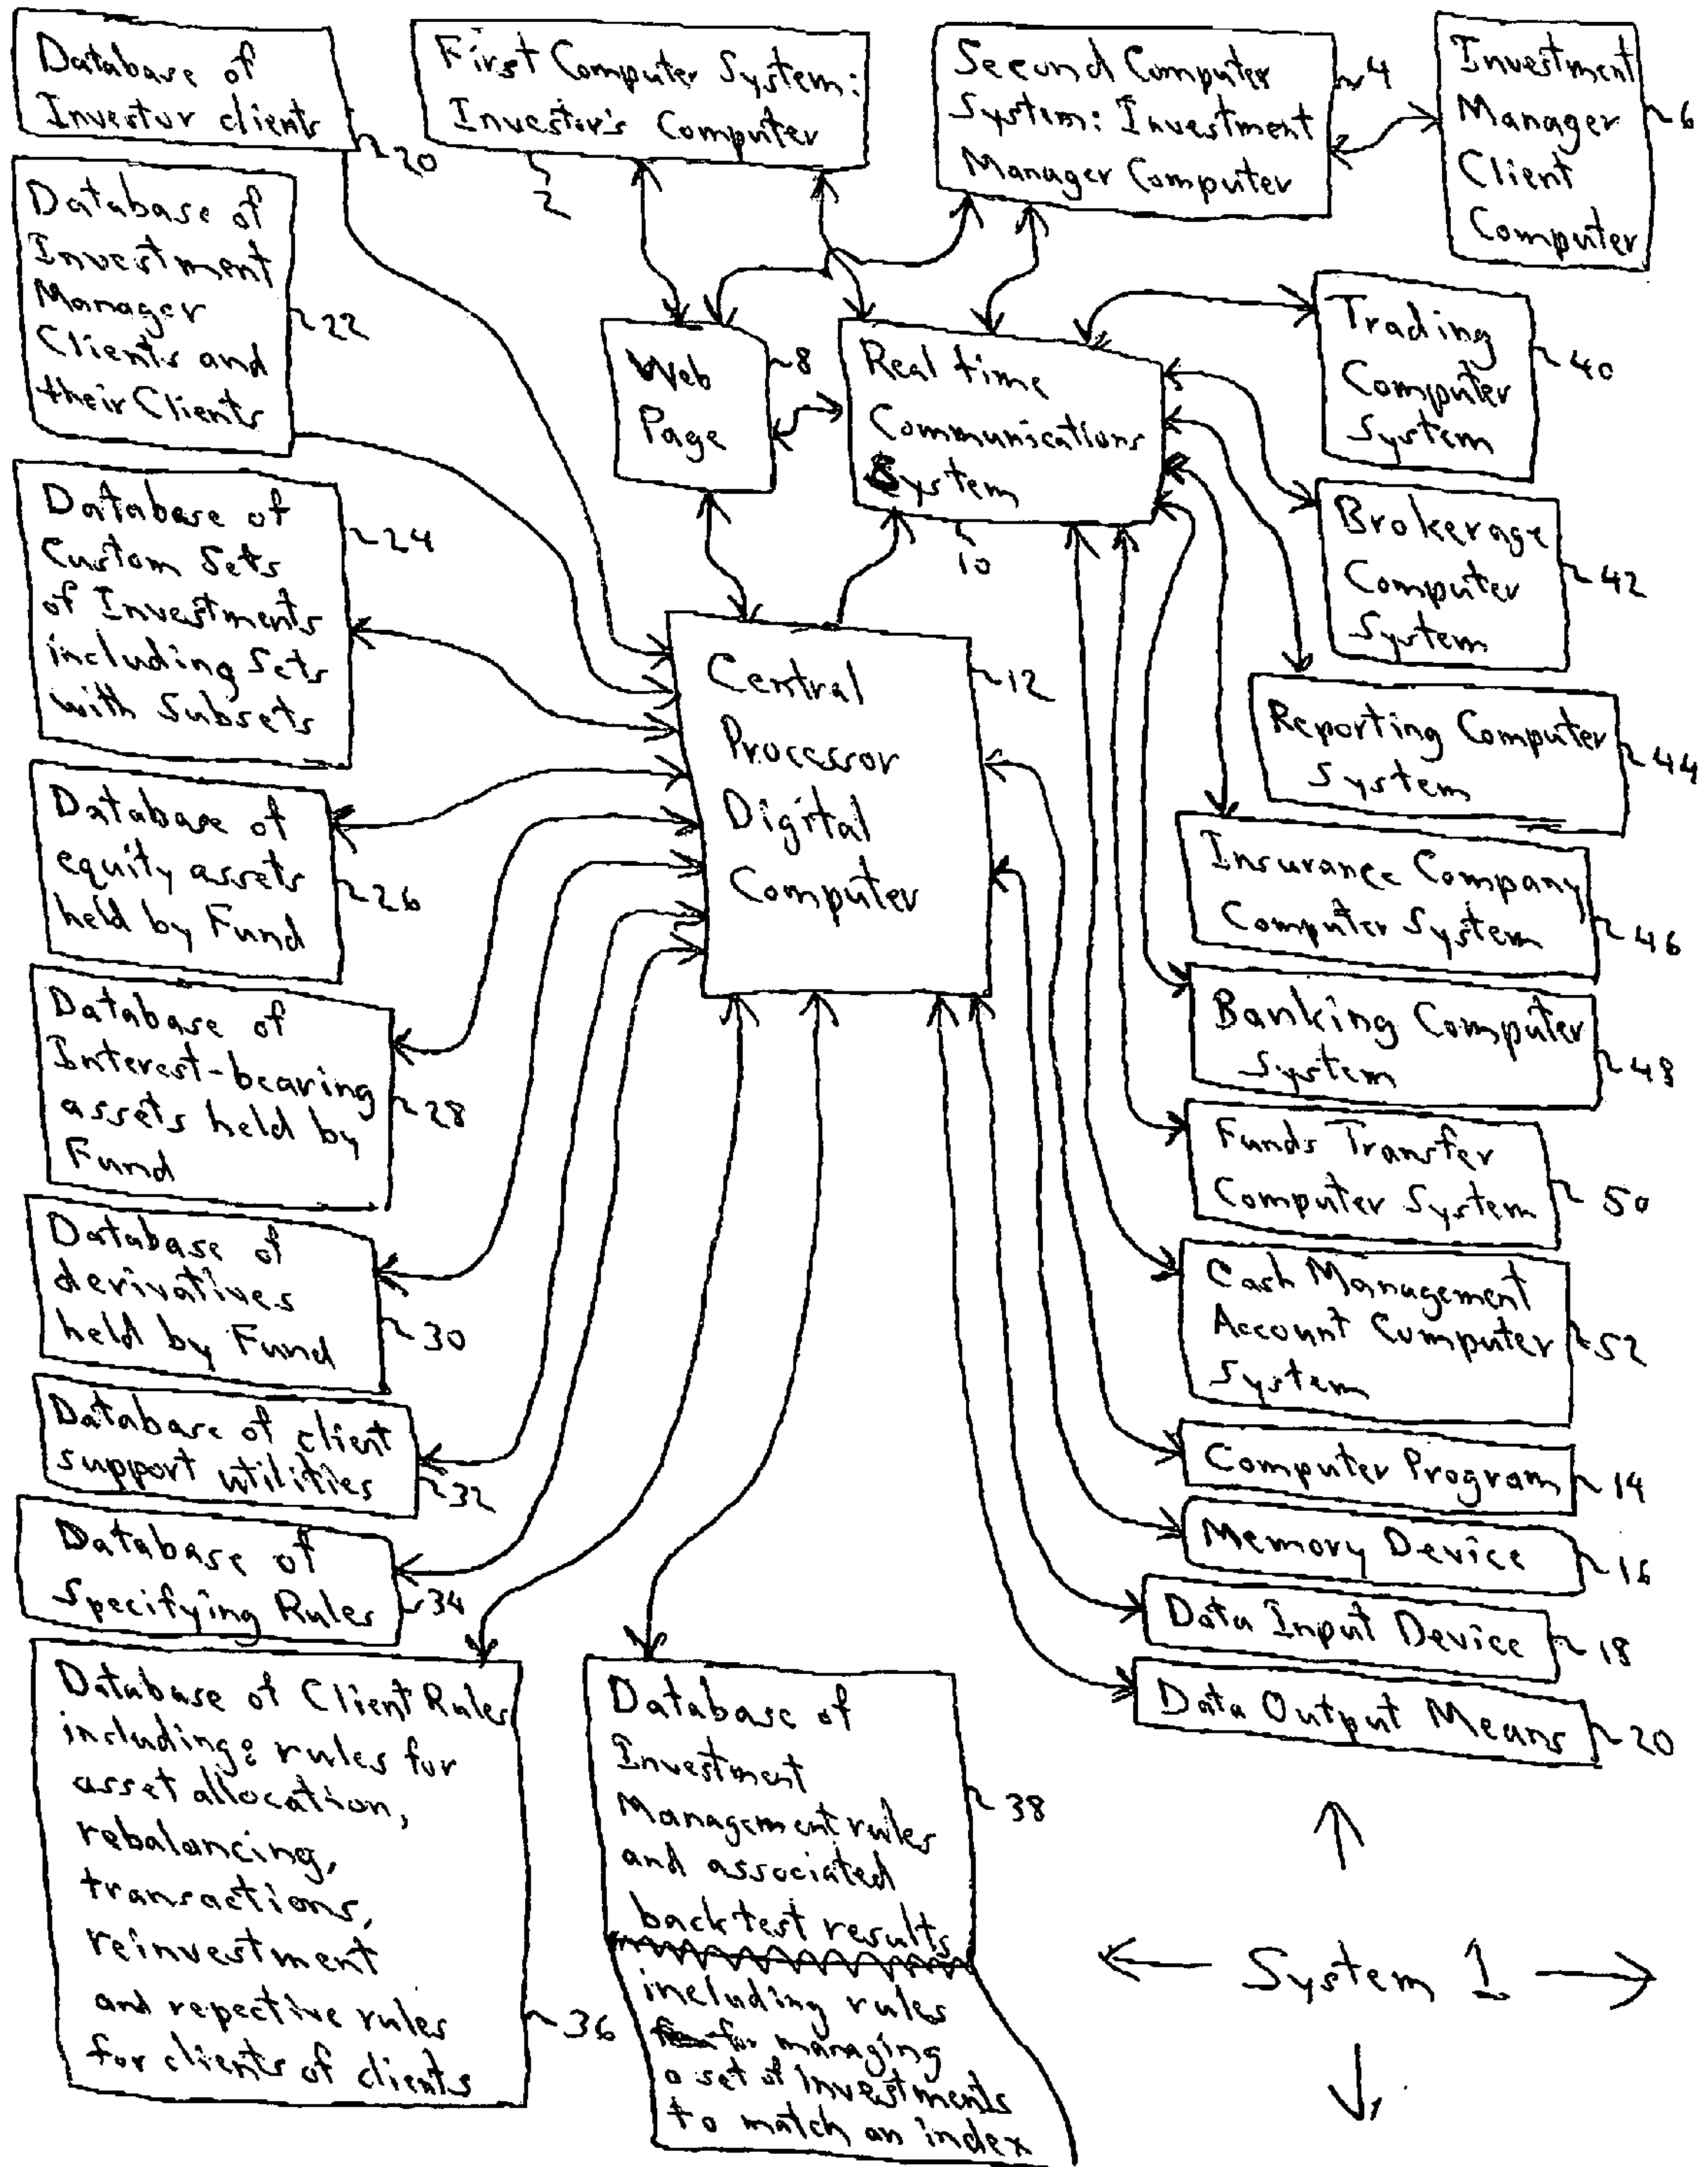 Database of
Investor clients
20
First Computer System:
Investor's Computer
2
Second Computer
System: Investment
Manager Computer
4
Investment
Manager
Client
Computer
6
Database of
Investment
Manager
Clients and
their Clients
22
Web
Page
8
Real time
Communications
System
10
Trading
Computer
System
40
Database of
Custom Sets
of Investments
including Sets
with Subsets
24
Brokerage
Computer
System
42
Central
Processor
Digital
Computer
12
Reporting Computer
System
44
Database of
equity assets
held by Fund
26
Insurance Company
Computer System
46
Database of
Interest-bearing
assets held by
Fund
28
Banking Computer
System
48
Funds Transfer
Computer System
50
Database of
derivatives
held by Fund
30
Cash Management
Account Computer
System
52
Database of client
support utilities
32
Computer Program
14
Database of
Specifying Rules
34
Memory Device
16
Data Input Device
18
Data Output Means
20
Database of Client Rules
including: rules for
asset allocation,
rebalancing,
transactions,
reinvestment
and repective rules
for clients of clients
36
Database of
Investment
Management rules
and associated
backtest results
including rules
for managing
a set of Investments
to match an index
38
System 1